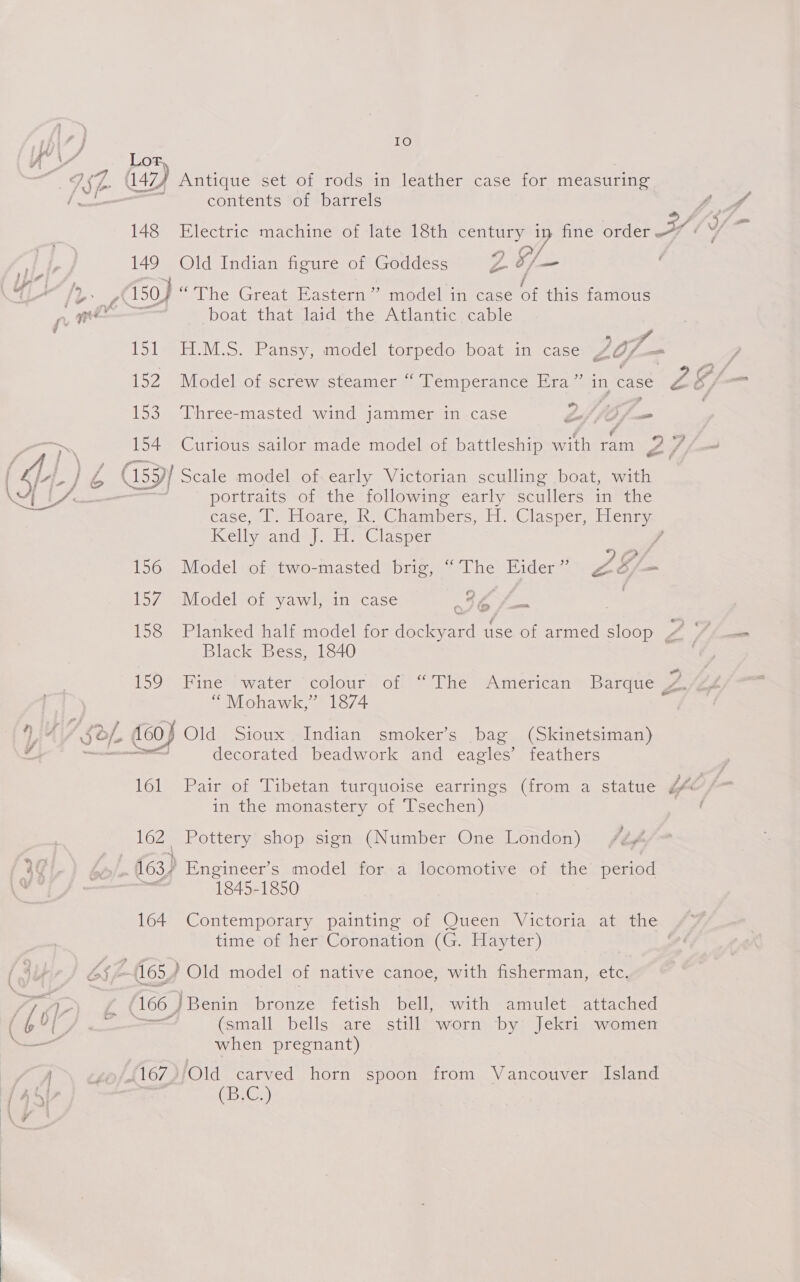 10
Lot
147 Antique set of rods in leather case for measuring
contents of barrels
148 Electric machine of late 18th century in fine order
149 Old Indian figure of Goddess
150 “The Great Eastern” model in case of this famous
boat that laid the Atlantic cable
151 H.M.S. Pansy, model torpedo boat in case
152 Model of screw steamer “Temperance Era” in case
153 Three-masted wind jammer in case
154 Curious sailor made model of battleship with ram
155 Scale model of early Victorian sculling boat, with
portraits of the following early scullers in the
case, T. Hoare, R. Chambers, H. Clasper, Henry
Kelly and J. H. Clasper
156 Model of two-masted brig, “The Eider”
157 Model of yawl, in case
158 Planked half model for dockyard use of armed sloop
Black Bess, 1840
159 Fine water colour of “The American Barque
“Mohawk,” 1874
160 Old Sioux Indian smoker’s bag (Skinetsiman)
decorated beadwork and eagles’ feathers
161 Pair of Tibetan turquoise earrings (from a statue
in the monastery of Tsechen)
162 Pottery shop sign (Number One London)
163 Engineer’s model for a locomotive of the period
1845-1850
164 Contemporary painting of Queen Victoria at the
time of her Coronation (G. Hayter)
165 Old model of native canoe, with fisherman, etc.
166 Benin bronze fetish bell, with amulet attached
(small bells are still worn by Jekri women
when pregnant)
167 Old carved horn spoon from Vancouver Island
(B.C.)